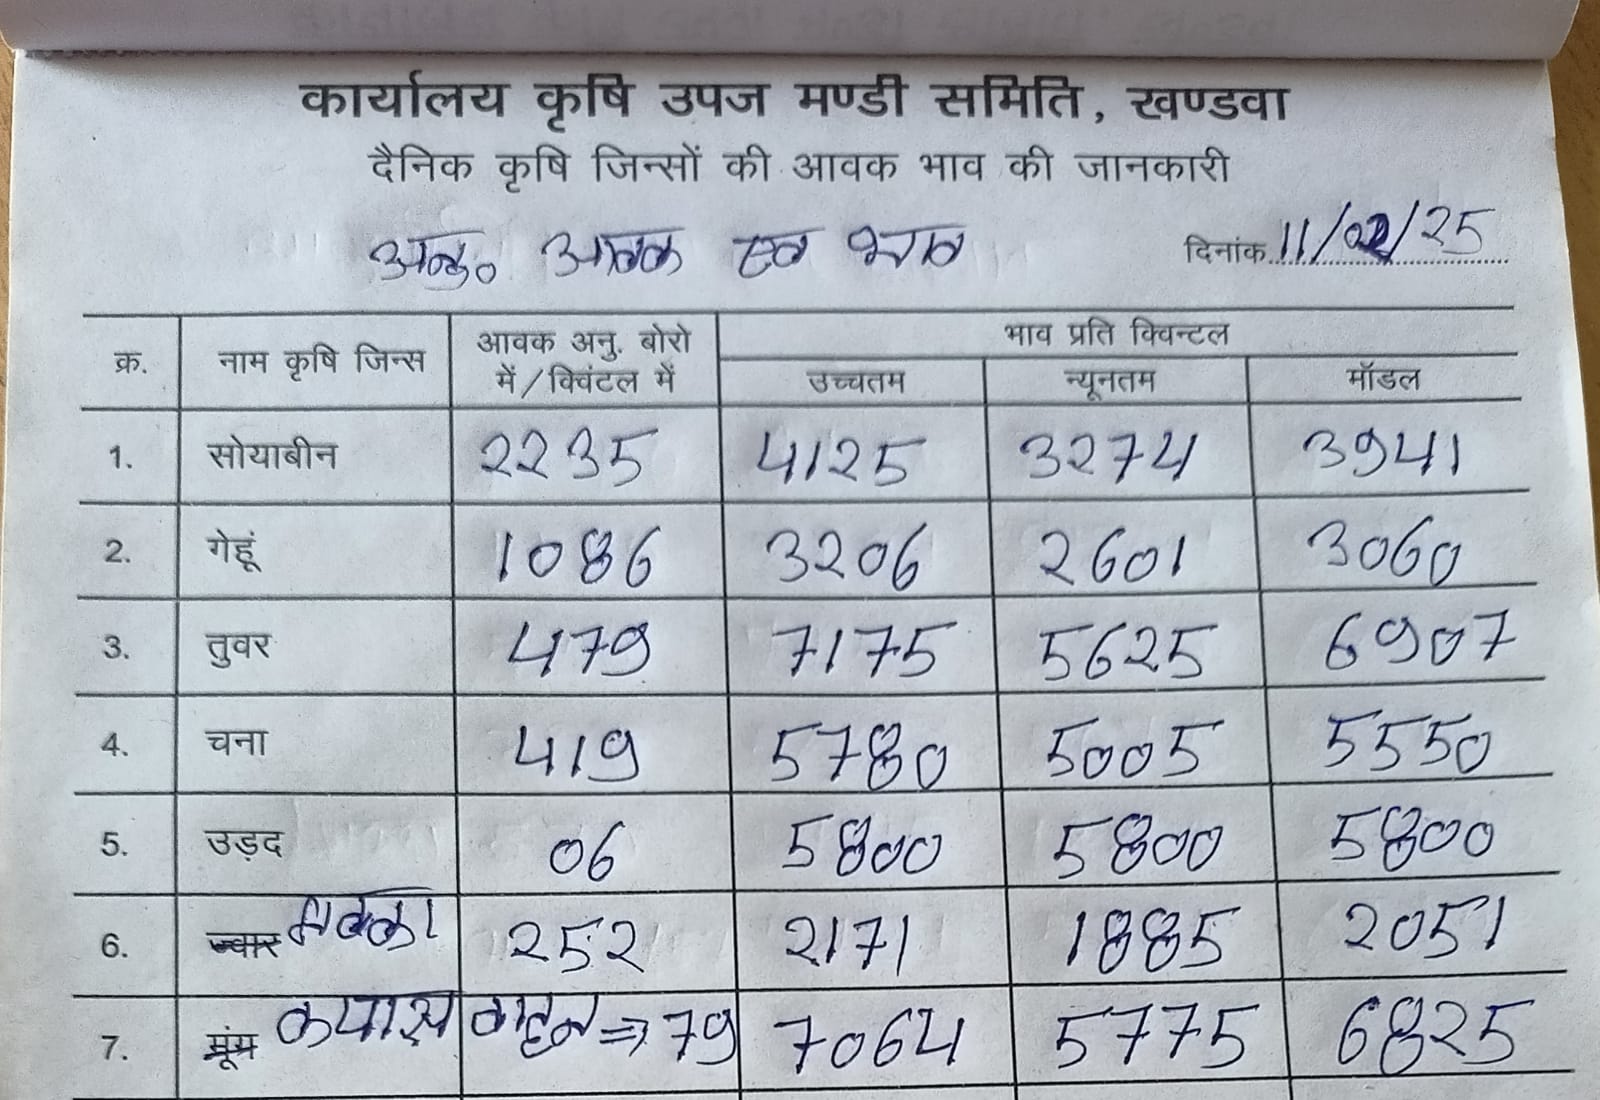 कार्यालय कृषि उपज मण्डी समिति, खण्डवा
दैनिक कृषि जिन्सों की आवक भाव की जानकारी
अनु० आवक एवं भाव दिनांक 11/02/25
क्र. नाम कृषि जिन्स आवक अनु. बोरो में/क्विंटल में भाव प्रति क्विन्टल
उच्चतम न्यूनतम मॉडल
1. सोयाबीन 2235 4125 3274 3941
2. गेहूं 1086 3206 2601 3060
3. तुवर 479 7175 5625 6907
4. चना 419 5780 5005 5550
5. उड़द 06 5800 5800 5800
6. ज्वार मक्का 252 2171 1885 2051
7. मूंग कपास वाहन => 79 7064 5775 6825